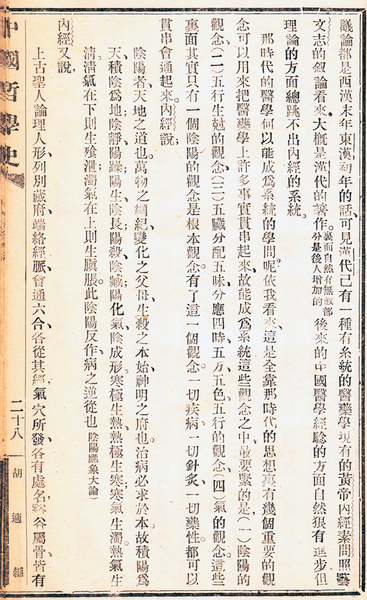 議論都是西漢末年東漢初年的話、可見漢代已有一種有系統的醫藥學現有的黃帝內經素問照藝
文志的敘論看來、大概是漢代的著作、裏面自然有無數部分是後人增加的 後來的中國醫學經驗的方面自然狠有進步但
理論的方面總跳不出內經的系統。
那時代的醫學何以能成爲系統的學問呢依我看來、這是全靠那時代的思想眞有幾個重要的觀
念可以用來把醫藥學上許多事實貫串起來、故能成爲系統這些觀念之中、最要緊的是(一)陰陽的
觀念(二)五行生尅的觀念(三)五臟分配五味分應四時、五方、五色、五行的觀念(四)氣的觀念。這些
裏面其實只有一個陰陽的觀念是根本觀念。有了這一個觀念一切疾病一切針灸、一切藥性都可以
貫串會通起來。內經說
陰陽者、天地之道也。萬物之綱紀、變化之父母、生殺之本始、神明之府也。治病必求於本、故積陽爲
天、積陰爲地、陰靜陽躁、陽生陰長、陽殺陰藏、陽化氣陰成形、寒極生熱、熱極生寒、寒氣生濁、熱氣生
清、清氣在下則生飧泄、濁氣在上則生䐜脹。此陰陽反作、病之逆從也。陰陽應象大論)
內經又說、
上古聖人論理人形、列別臟府、端絡經脈、會通六合、各從其經、氣穴所發、各有處名、谿谷屬骨、皆有
中國哲學史
二十八
胡適編